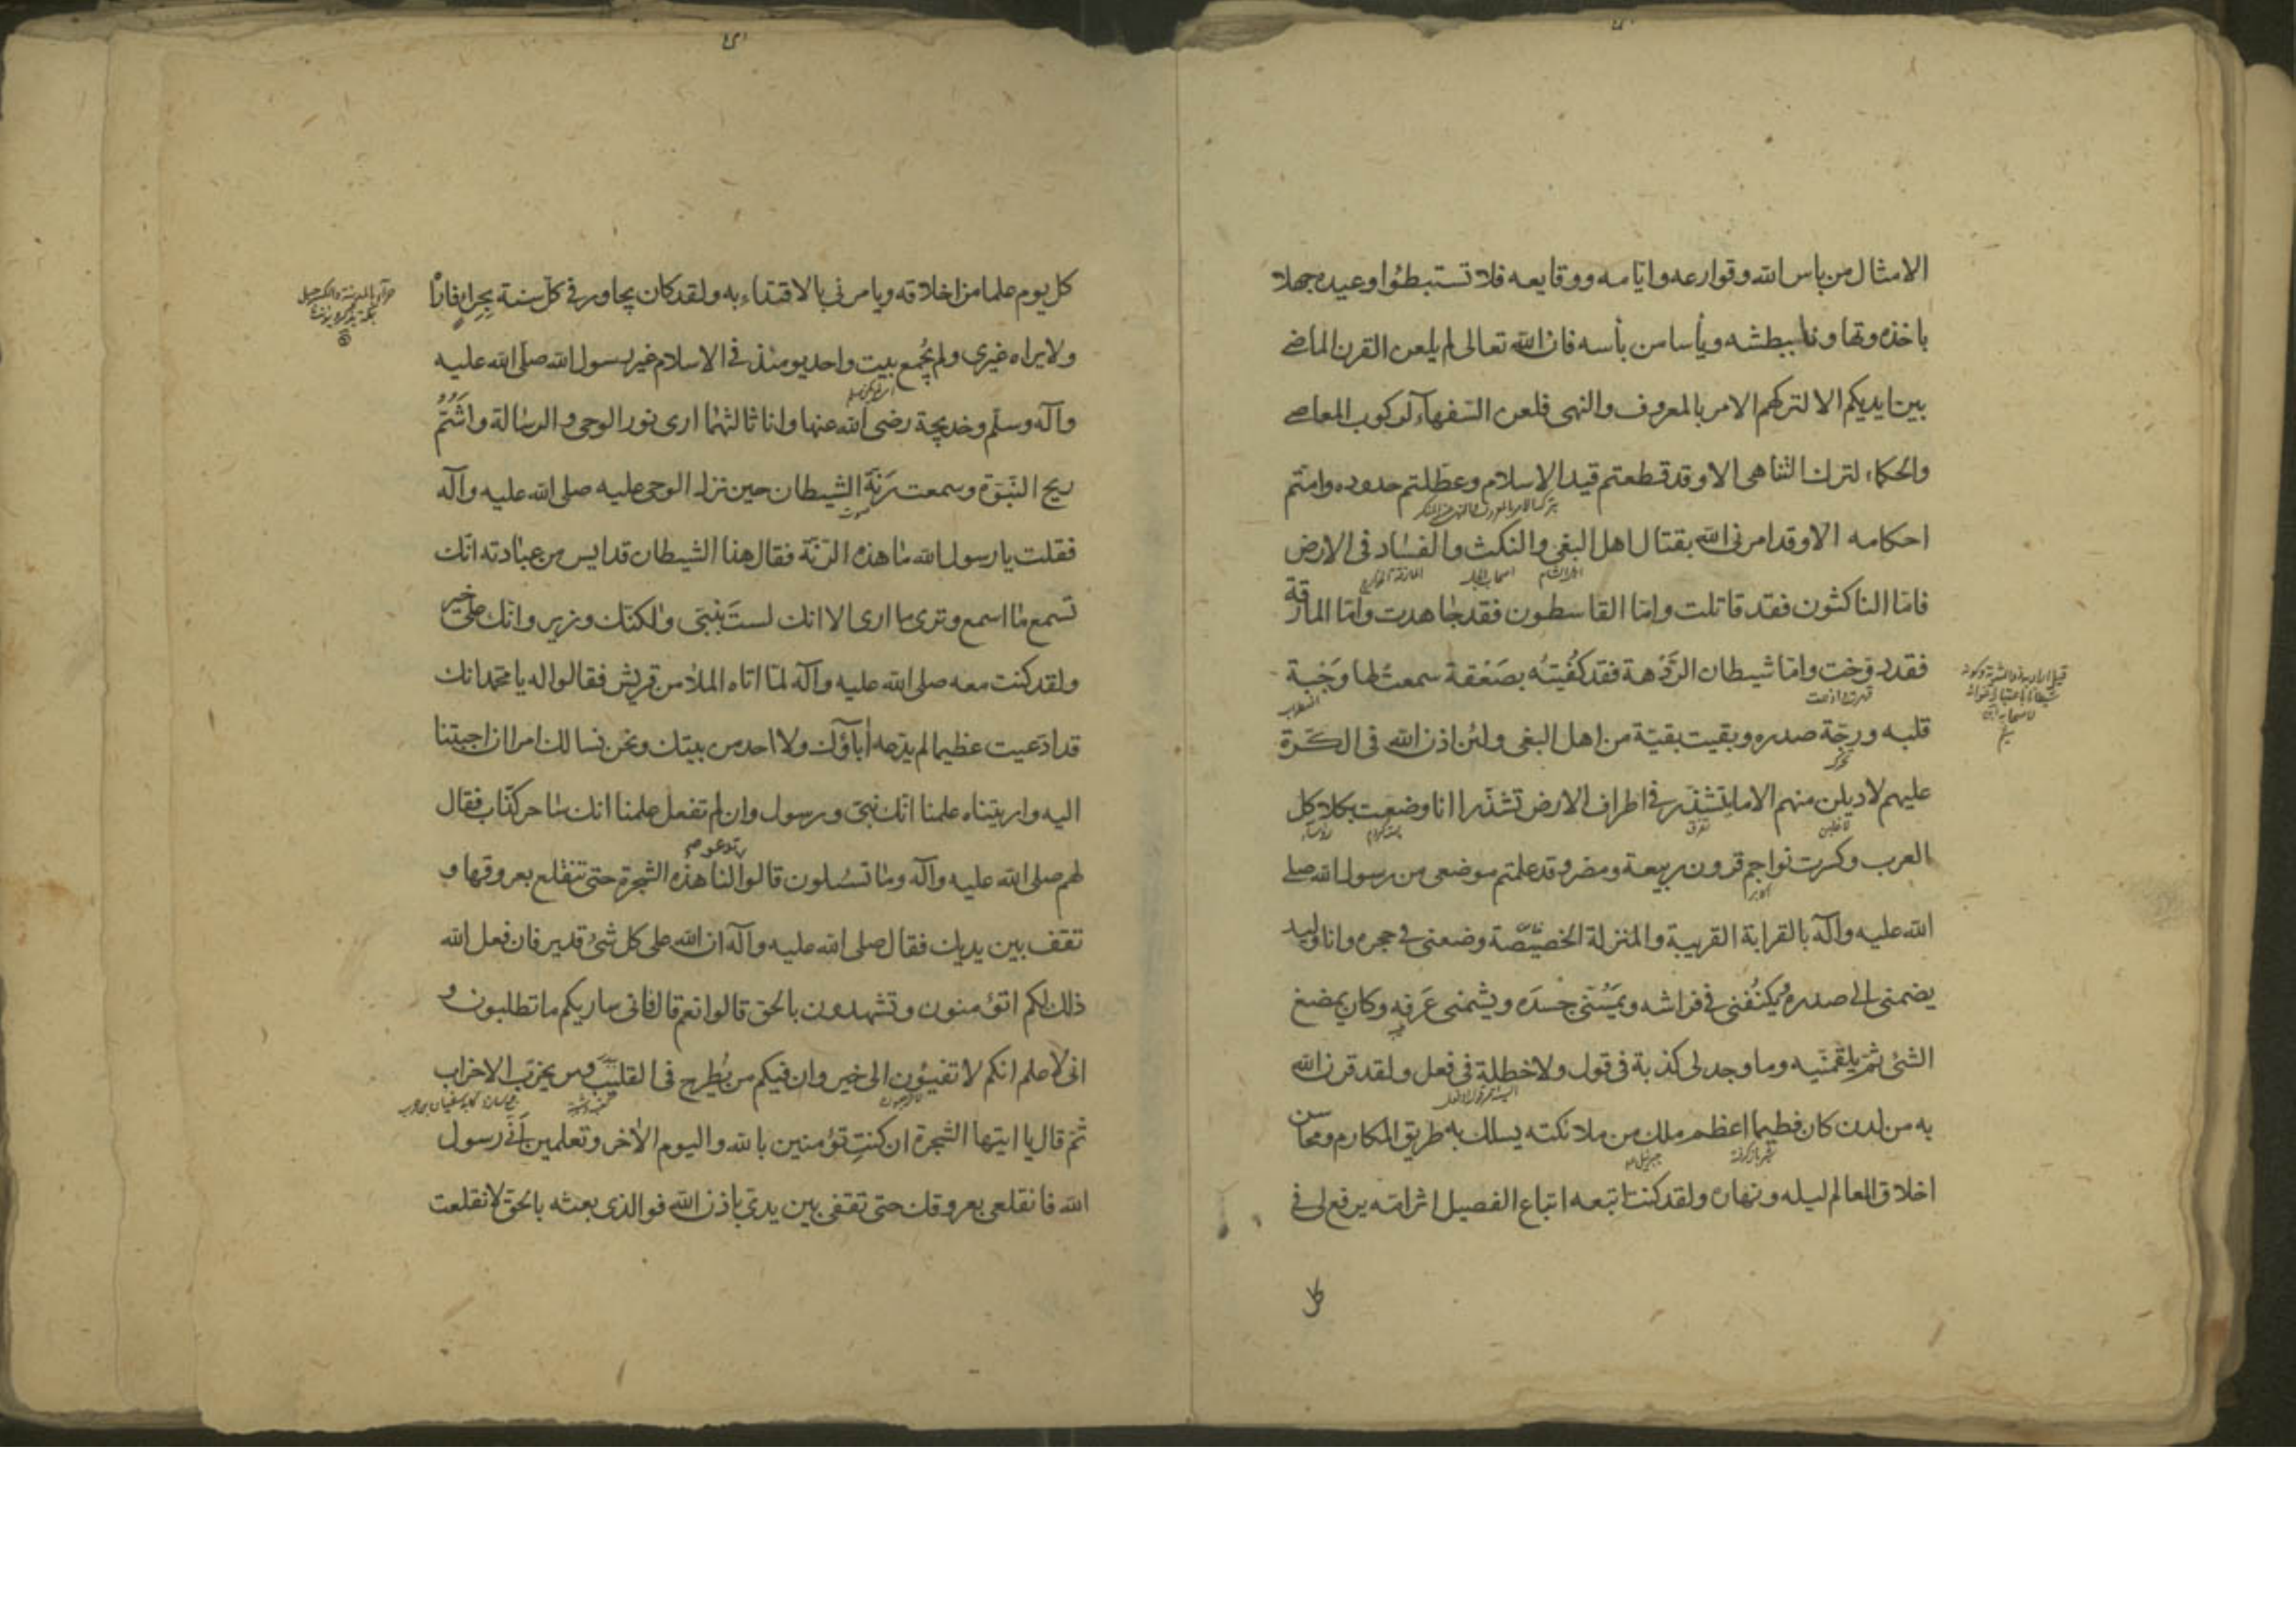 الامثال من باس الله وقوارعه وايامه ووقايعه فلا تستبطؤا وعيده جهلا
باخذه وتهاونا ببطشه ويأسا من بأسه فان الله تعالى لم يلعن القرن الماضي
بين ايديكم الا لتركهم الامر بالمعروف والنهى فلعن السفهاء لركوب المعاصي
والحكماء لترك التناهى الا وقد قطعتم قيد الاسلام وعطلتم حدوده وامتم
احكامه الا وقد امرنى الله بقتال اهل البغى والنكث والفساد فى الارض
فاما الناكثون فقد قاتلت واما القاسطون فقد جاهدت واما المارقة
فقد دوخت واما شيطان الردهة فقد كفيته بصعقة سمعت لها وجبة
قلبه ورجة صدره وبقيت بقية من اهل البغى ولئن اذن الله فى الكرة
عليهم لاديلن منهم الا ما يتشذر فى اطراف الارض تشذرا انا وضعت بكلاكل
العرب وكسرت نواجم قرون ربيعة ومضر وقد علمتم موضعى من رسول الله صلى
الله عليه وآله بالقرابة القريبة والمنزلة الخصيصة وضعنى فى حجره وانا وليد
يضمنى الى صدره ويكنفنى فى فراشه ويمسنى جسده ويشمنى عرفه وكان يمضغ
الشئ ثم يلقمنيه وما وجد لى كذبة فى قول ولا خطلة فى فعل ولقد قرن الله
به من لدن كان فطيما اعظم ملك من ملائكته يسلك به طريق المكارم ومحاسن
اخلاق العالم ليله ونهاره ولقد كنت اتبعه اتباع الفصيل اثر امه يرفع لى فى
كل
كل يوم علما من اخلاقه ويامرنى بالاقتداء به ولقد كان يجاور فى كل سنة بحراء فاراه
ولا يراه غيرى ولم يجمع بيت واحد يومئذ فى الاسلام غير رسول الله صلى الله عليه
وآله وسلم وخديجة رضى الله عنها وانا ثالثهما ارى نور الوحى والرسالة واشم
ريح النبوة وسمعت رنة الشيطان حين نزل الوحى عليه صلى الله عليه وآله
صوت
فقلت يا رسول الله ما هذه الرنة فقال هذا الشيطان قد ايس من عبادته انك
تسمع ما اسمع وترى ما ارى الا انك لست بنبى ولكنك وزير وانك على خير
ولقد كنت معه صلى الله عليه وآله لما اتاه الملأ من قريش فقالوا له يا محمد انك
قد ادعيت عظيما لم يدعه اباؤك ولا احد من بيتك ونحن نسالك امرا ان اجبتنا
اليه واريتناه علمنا انك نبى ورسول وان لم تفعل علمنا انك ساحر كذاب فقال
تدعو
لهم صلى الله عليه وآله وما تسئلون قالوا لنا هذه الشجرة حتى تنقلع بعروقها و
تقف بين يديك فقال صلى الله عليه وآله ان الله على كل شئ قدير فان فعل الله
ذلك لكم اتؤمنون وتشهدون بالحق قالوا نعم قال فانى ساريكم ما تطلبون و
انى لاعلم انكم لا تفيئون الى خير وان فيكم من يطرح فى القليب ومن يحزب الاحزاب
ثم قال يا ايتها الشجرة ان كنت تؤمنين بالله واليوم الاخر وتعلمين انى رسول
الله فانقلعى بعروقك حتى تقفى بين يدى باذن الله فوالذى بعثه بالحق لانقلعت